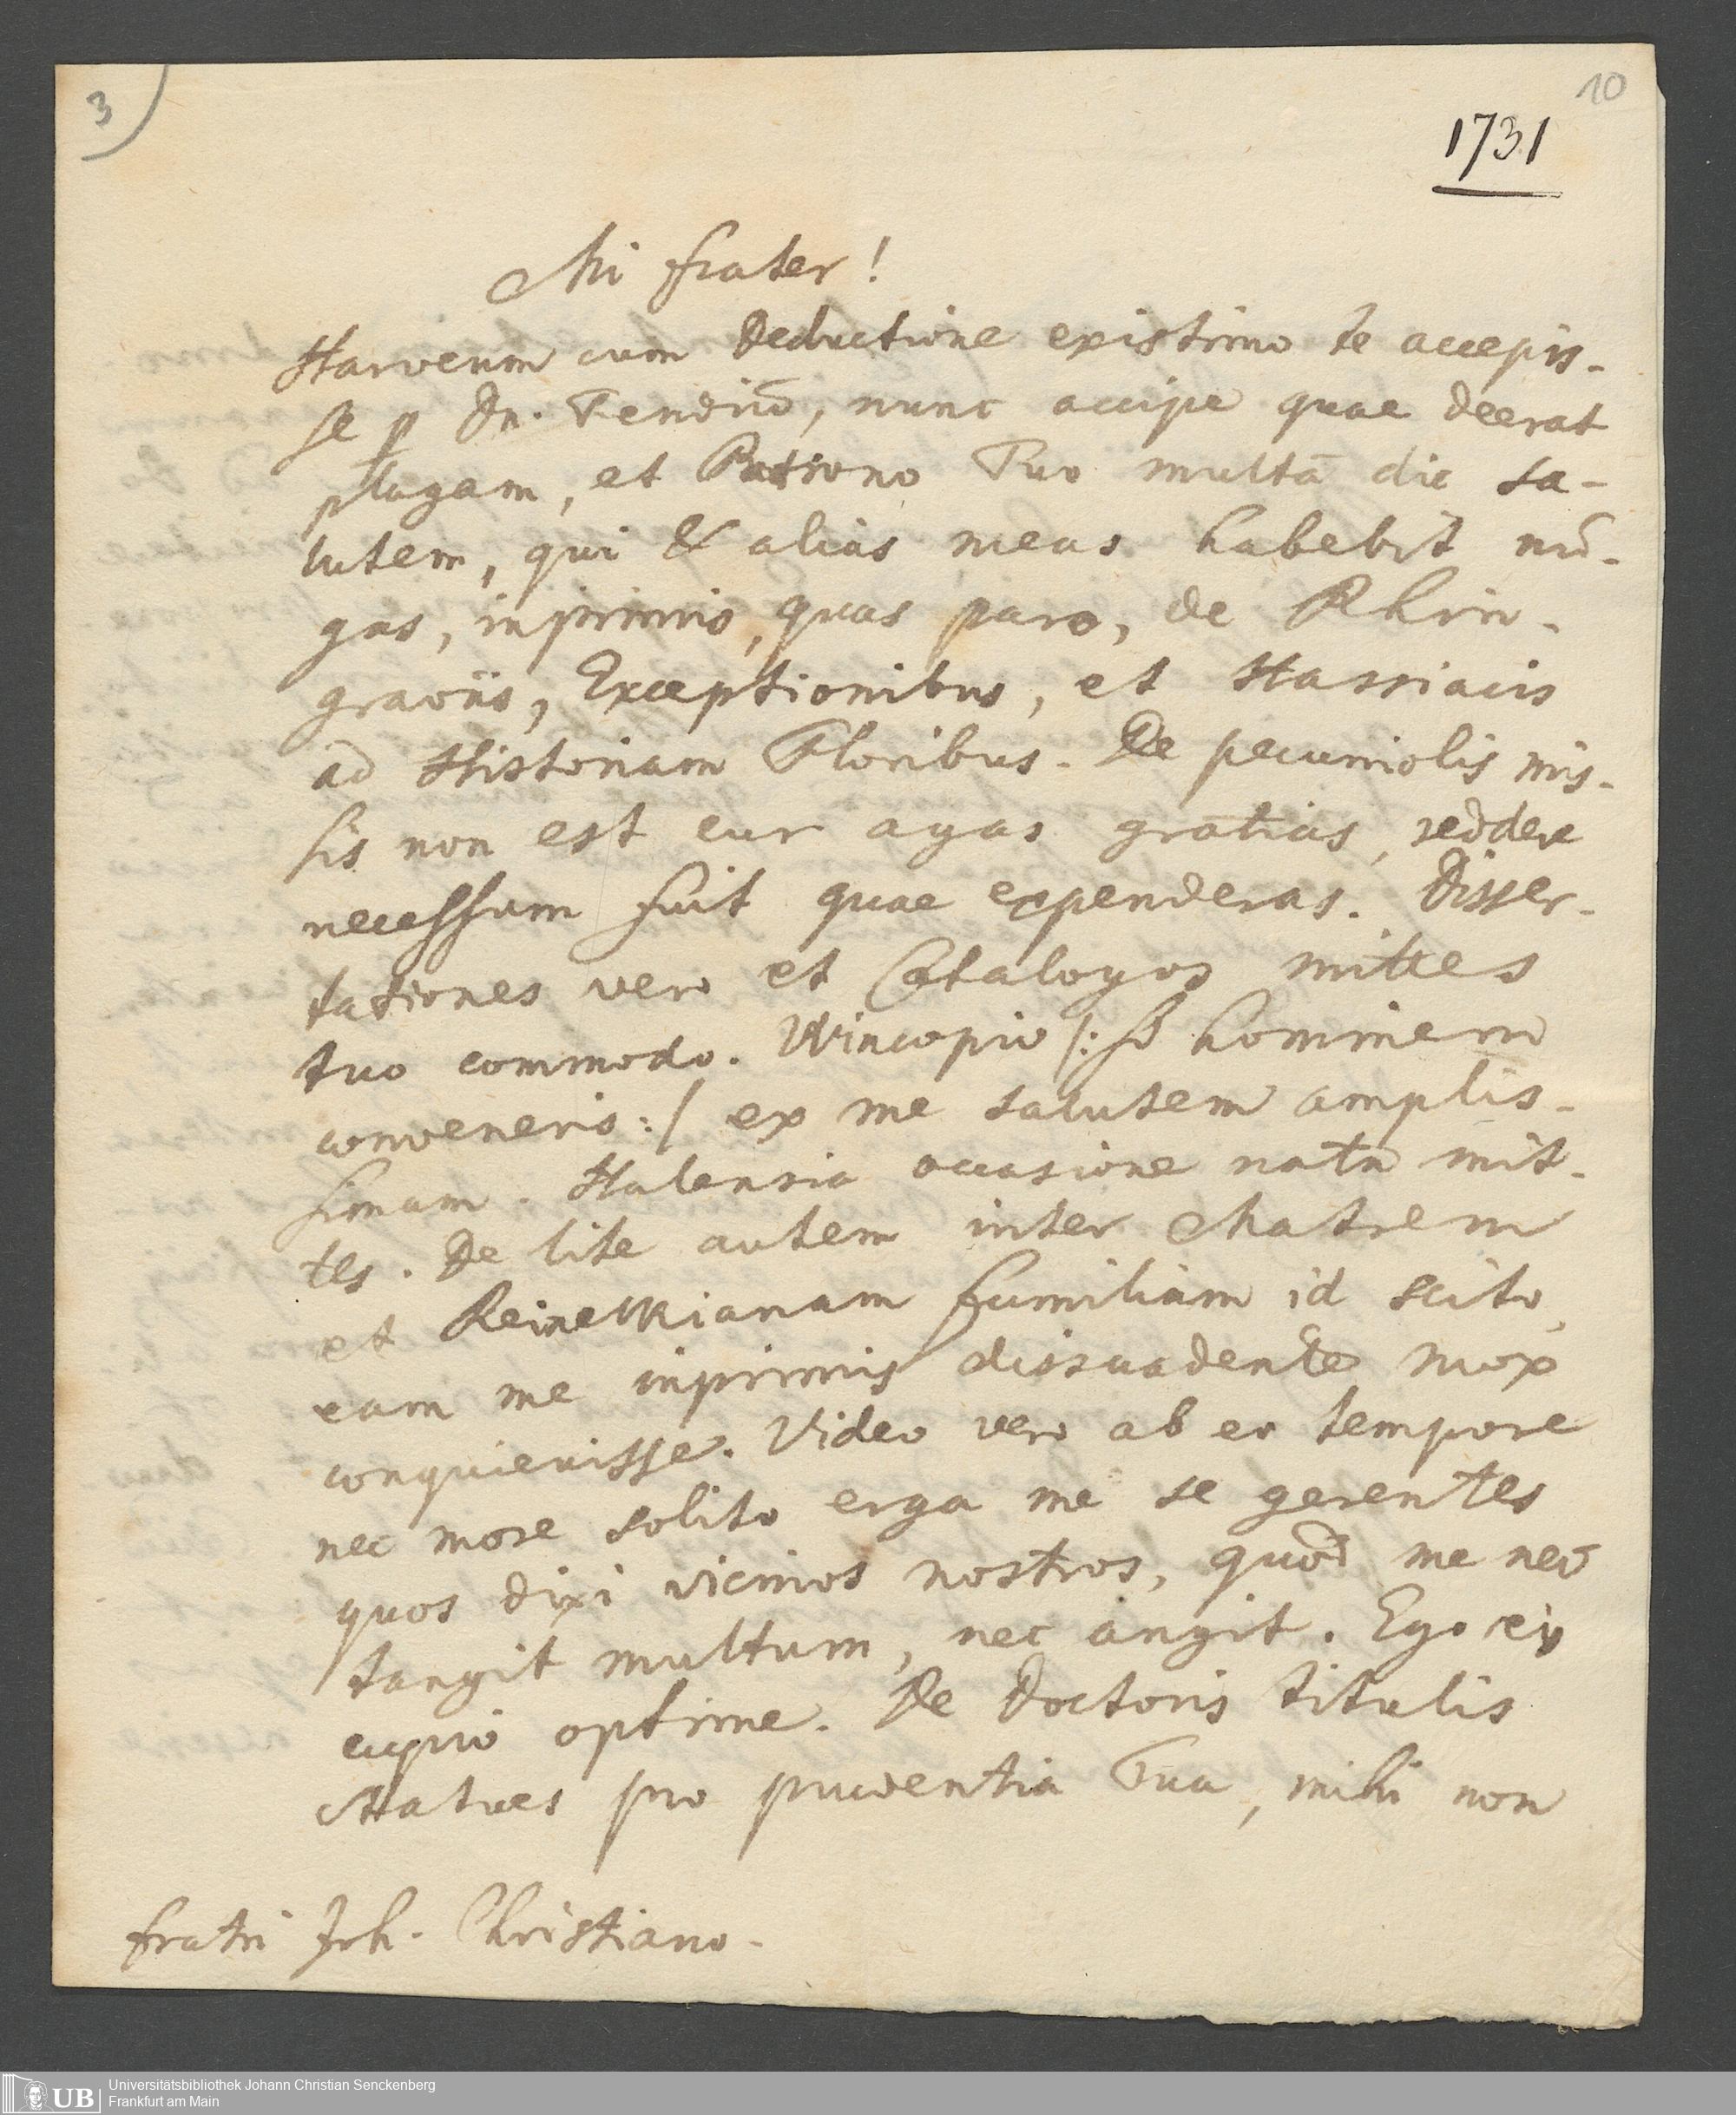 3
10
1731
Mi frater!
Harveum cum Deductione existimo te accepis-
se p Dn. Fendiū, nunc accipe quae deerat
plagam, et Patrono Tuo multā dic sa-
lutem, qui & alias meas habebit nū-
gas, inprimis, quas paro, de Rhin-
graviis, Exceptionibus, et Hassiacis
ad Historiam Floribus. De pecuniolis mis-
sis non est cur agas gratias, reddere
necessum fuit quae expenderas. Disser-
tationes vero et Catalogos mittes
tuo commodo. Wincopio /: si hominem
conveneris :/ ex me salutem amplis-
simam. Halensia occasione nata mit-
tes. De lite autem inter Matrem
et Reinekianam familiam id scito,
eam me inprimis dissuadente mox
conquievisse. Video vero ab eo tempore
nec more solito erga me se gerentes
quos dixi vicinos nostros, quod me nec
tangit multum, nec angit. Ego eis
cupio optime. De Doctoris titulis
statues pro prudentia Tua, mihi non
fratri Joh. Christiano.
UB
Universitätsbibliothek Johann Christian Senckenberg
Frankfurt am Main